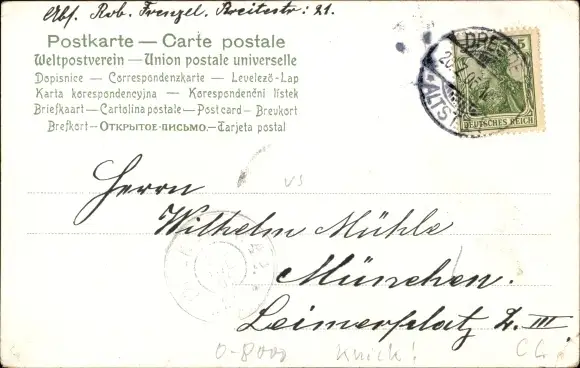 Abs. Rob. Frenzel. Breitestr: 21.
Postkarte — Carte postale
Weltpostverein — Union postale universelle
Dopisnice — Correspondenzkarte — Levelező-Lap
Karta korespondencyjna — Korespondenční lístek
Briefkaart — Cartolina postale — Post card — Brevkort
Brefkort — Открытое письмо — Tarjeta postal
DRESDEN
ALTST.
5
DEUTSCHES REICH
VS
Herrn
Wilhelm Mühle
München.
Leimerplatz 2. III.
0-8000 Knick!